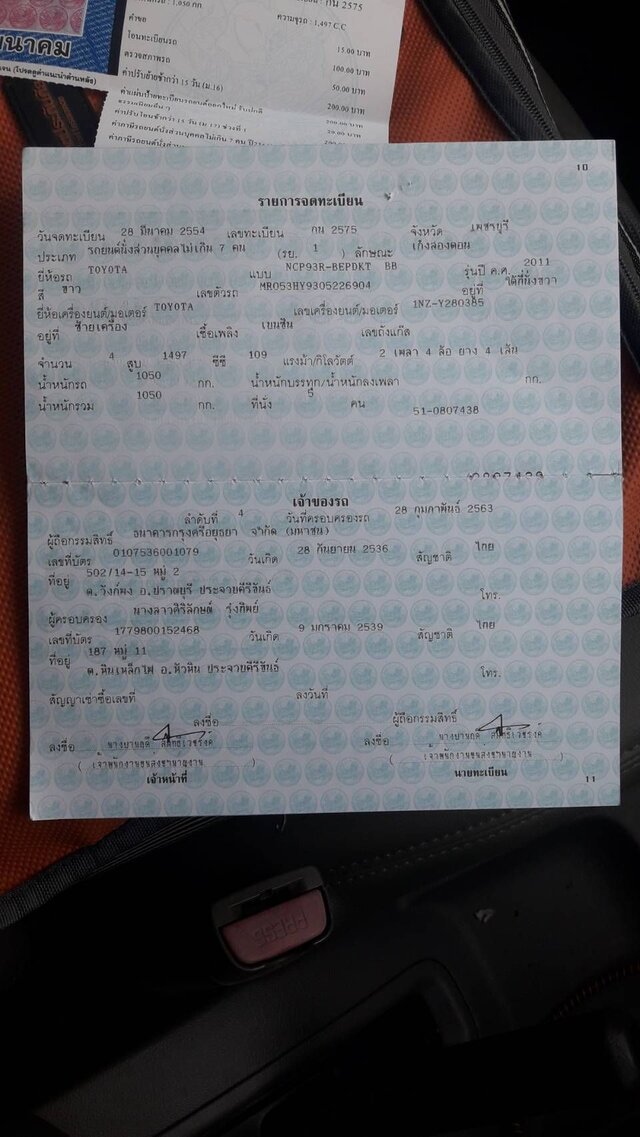 1,050 กก.
กน 2575
ความจุรถ : 1,497 C.C
ค่าขอ
โอนทะเบียนรถ 15.00 บาท
ตรวจสภาพรถ 100.00 บาท
ค่าปรับย้ายช้ากว่า 15 วัน (ม.16) 50.00 บาท
200.00 บาท
200.00 บาท
10
รายการจดทะเบียน
วันจดทะเบียน 28 มีนาคม 2554 เลขทะเบียน กน 2575 จังหวัด เพชรบุรี
ประเภท รถยนต์นั่งส่วนบุคคลไม่เกิน 7 คน (รย. 1 ) ลักษณะ เก๋งสองตอน
ยี่ห้อรถ TOYOTA แบบ NCP93R-BEPDKT BB รุ่นปี ค.ศ. 2011
สี ขาว เลขตัวรถ MR053HY9305226904 อยู่ที่ ใต้ที่นั่งขวา
ยี่ห้อเครื่องยนต์/มอเตอร์ TOYOTA เลขเครื่องยนต์/มอเตอร์ 1NZ-Y280385
อยู่ที่ ซ้ายเครื่อง เชื้อเพลิง เบนซิน เลขถังแก๊ส
จำนวน 4 สูบ 1497 ซีซี 109 แรงม้า/กิโลวัตต์ 2 เพลา 4 ล้อ ยาง 4 เส้น
น้ำหนักรถ 1050 กก. น้ำหนักบรรทุก/น้ำหนักลงเพลา กก.
น้ำหนักรวม 1050 กก. ที่นั่ง 5 คน
51-0807438
เจ้าของรถ
ลำดับที่ 4 วันที่ครอบครองรถ 28 กุมภาพันธ์ 2563
ผู้ถือกรรมสิทธิ์ ธนาคารกรุงศรีอยุธยา จำกัด (มหาชน)
เลขที่บัตร 0107536001079 วันเกิด 28 กันยายน 2536 สัญชาติ ไทย
ที่อยู่ 502/14-15 หมู่ 2
ต.วังก์พง อ.ปราณบุรี ประจวบคีรีขันธ์ โทร.
ผู้ครอบครอง นางสาวศิริลักษณ์ รุ่งทิพย์
เลขที่บัตร 1779800152468 วันเกิด 9 มกราคม 2539 สัญชาติ ไทย
ที่อยู่ 187 หมู่ 11
ต.หินเหล็กไฟ อ.หัวหิน ประจวบคีรีขันธ์ โทร.
สัญญาเช่าซื้อเลขที่ ลงวันที่
ลงชื่อ ผู้ถือกรรมสิทธิ์
ลงชื่อ ลงชื่อ
(เจ้าพนักงานขนส่งชำนาญงาน) (เจ้าพนักงานขนส่งชำนาญงาน)
เจ้าหน้าที่ นายทะเบียน
11
PRESS